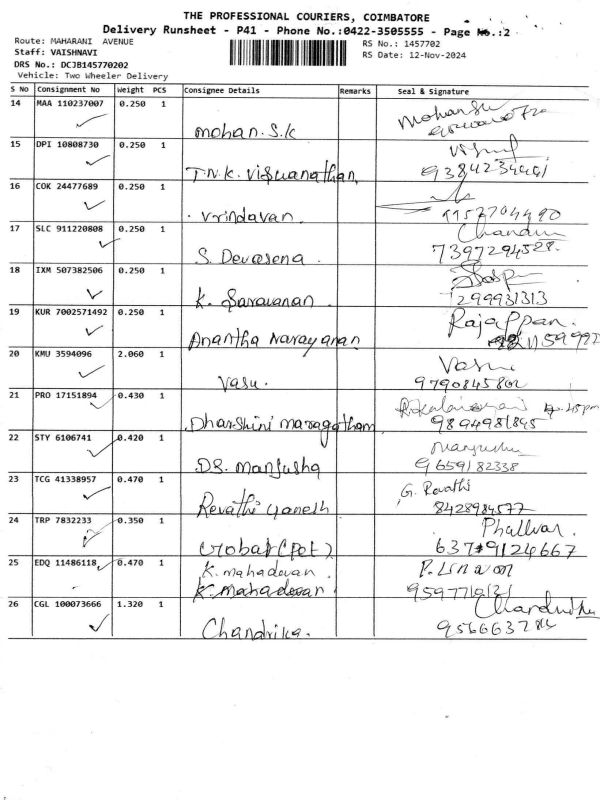 THE PROFESSIONAL COURIERS, COIMBATORE
Delivery Runsheet - P41 - Phone No.:0422-3505555 - Page No.:2
Route: MAHARANI AVENUE
RS No.: 1457702
Staff: VAISHNAVI
RS Date: 12-Nov-2024
DRS No.: DCJB145770202
Vehicle: Two Wheeler Delivery
S No Consignment No Weight PCS Consignee Details Remarks Seal & Signature
14 MAA 110237007 0.250 1
mohan.S.K
15 DPI 10808730 0.250 1
T.N.K. Viswanathan
9384234441
16 COK 24477689 0.250 1
Vrindavan
17 SLC 911220808 0.250 1
S. Devasena
7397294528
18 IXM 507382506 0.250 1
K. Saravanan
7299931313
19 KUR 7002571492 0.250 1
Anantha Narayanan
Rajappan
20 KMU 3594096 2.060 1
Vasu
Vasu
21 PRO 17151894 0.430 1
Dharshini maragatham
22 STY 6106741 0.420 1
DS. Manjusha
9659182338
23 TCG 41338957 0.470 1
Revathi Ganesh
G. Revathi
8428984577
24 TRP 7832233 0.350 1
25 EDQ 11486118 0.470 1
K. mahadevan
K. mahadevan
26 CGL 100073666 1.320 1
Chandrika.